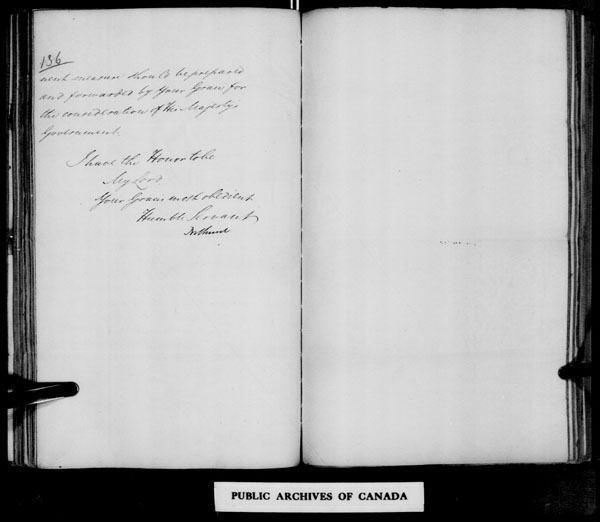 136
nent measure should be prepared
and forwarded by Your Grace for
the consideration of Her Majesty's
Government.
I have the Honor to be
My Lord
Your Grace's most obedient
Humble Servant
PUBLIC ARCHIVES OF CANADA